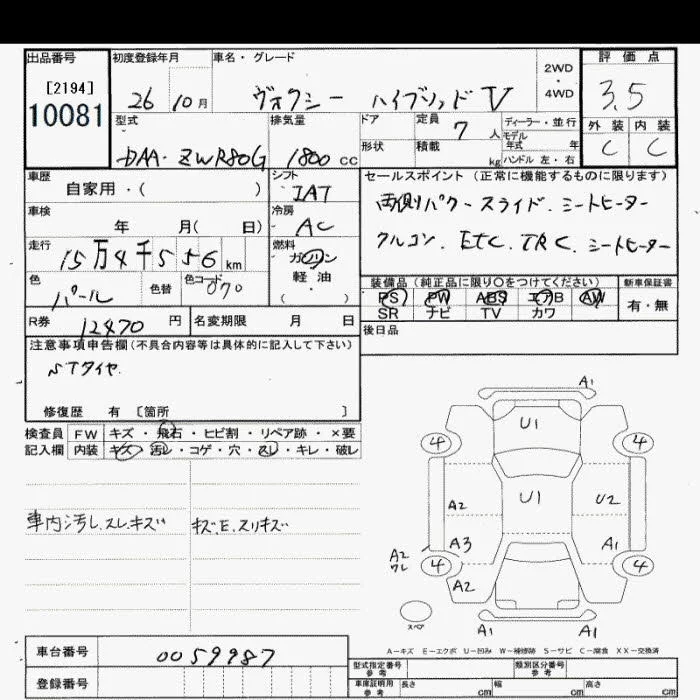 出品番号 初度登録年月 車名・グレード 評価点
[2194]
10081
26 10月 ヴォクシー ハイブリッド V
2WD
・
4WD
3.5
型式 排気量 ドア 定員 7 人 ディーラー・並行
モデル
年式 年
外装 内装
DAA-ZWR80G 1800 cc 形状 積載 kg ハンドル 左・右 C C
車歴 自家用・( ) シフト IAT セールスポイント (正常に機能するものに限ります)
両側パワースライド.シートヒーター
車検 年 月( 日) 冷房 AC
クルコン.ETC.TRC.シートヒーター
走行 15万4千556 km 燃料 ガソリン
軽・油
( )
色 パール 色替 色コード 070
装備品 (純正品に限り○をつけてください) 新車保証書
PS PW ABS エアB AW 有・無
SR ナビ TV カワ
R券 12470 円 名変期限 月 日 後日品
注意事項申告欄(不具合内容等は具体的に記入して下さい)
STタイヤ
修復歴 有 [箇所 ]
検査員 FW キズ・飛石・ヒビ割・リペア跡・×要
記入欄 内装 キズ・汚レ・コゲ・穴・スレ・キレ・破レ
車内汚し.スレ.キズ キズ.E.スリキズ
A1
U1
4 4
A2 U1 U2
A3 A1
A2
ワレ
4 4
A2
スペア
A1 A1
A－キズ E－エクボ U－凹み W－補修跡 S－サビ C－腐食 XX－交換済
車台番号 0059987
登録番号
型式指定番号
参考
類別区分番号
参考
車庫証明用
参考
長さ cm 幅 cm 高さ cm